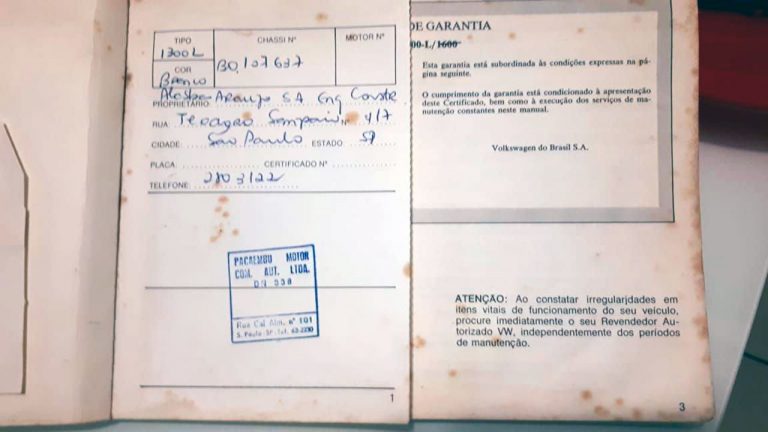 TIPO
1300L
CHASSI Nº
BO.107637
MOTOR Nº
COR
Branco
Araujo SA Eng Constr
PROPRIETÁRIO
RUA: Teodoro Sampaio Nº 417
CIDADE: São Paulo ESTADO: SP
PLACA: CERTIFICADO Nº
TELEFONE: 2803122
PACAEMBU MOTOR
COM. AUT. LTDA.
DN 038
nº 101
S. Paulo - SP - Tel.
1
DE GARANTIA
00-L/1600
Esta garantia está subordinada às condições expressas na pá-
gina seguinte.
O cumprimento da garantia está condicionado à apresentação
deste Certificado, bem como à execução dos serviços de ma-
nutenção constantes neste manual.
Volkswagen do Brasil S.A.
ATENÇÃO: Ao constatar irregularidades em
itens vitais de funcionamento do seu veículo,
procure imediatamente o seu Revendedor Au-
torizado VW, independentemente dos períodos
de manutenção.
3